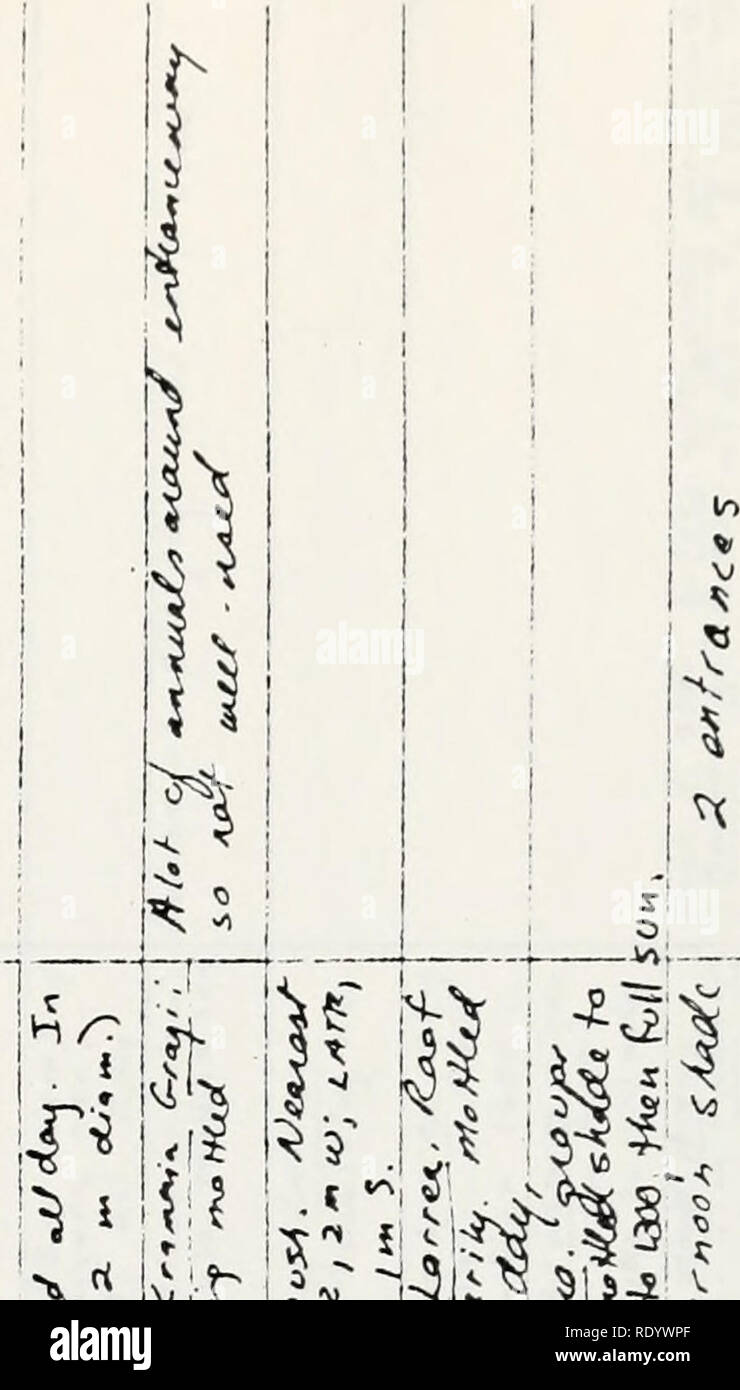 d all day. In
2 m diam.)
Krameria Grayi;
mottled
A lot of annuals around entranceway
so not well-used
ush. Nearest
2, 2 m W; LATR,
1m S.
Larrea. Roof
rily. mottled
day,
group
mottled shade to
to 1300, then full sun.
rnoon shade
2 entrances
alamy
alamy
alamy
alamy
Image ID: RDYWPF
www.alamy.com